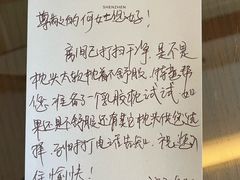 SHENZHEN
尊敬的何女士您好!
离自己打扫干净,是不是
枕头太软枕着不舒服,特意帮
您准备了一个乳胶枕试试,如
果还是不舒服还有其它枕头供您选
择,到时打电话告知,祝您入
住愉快!